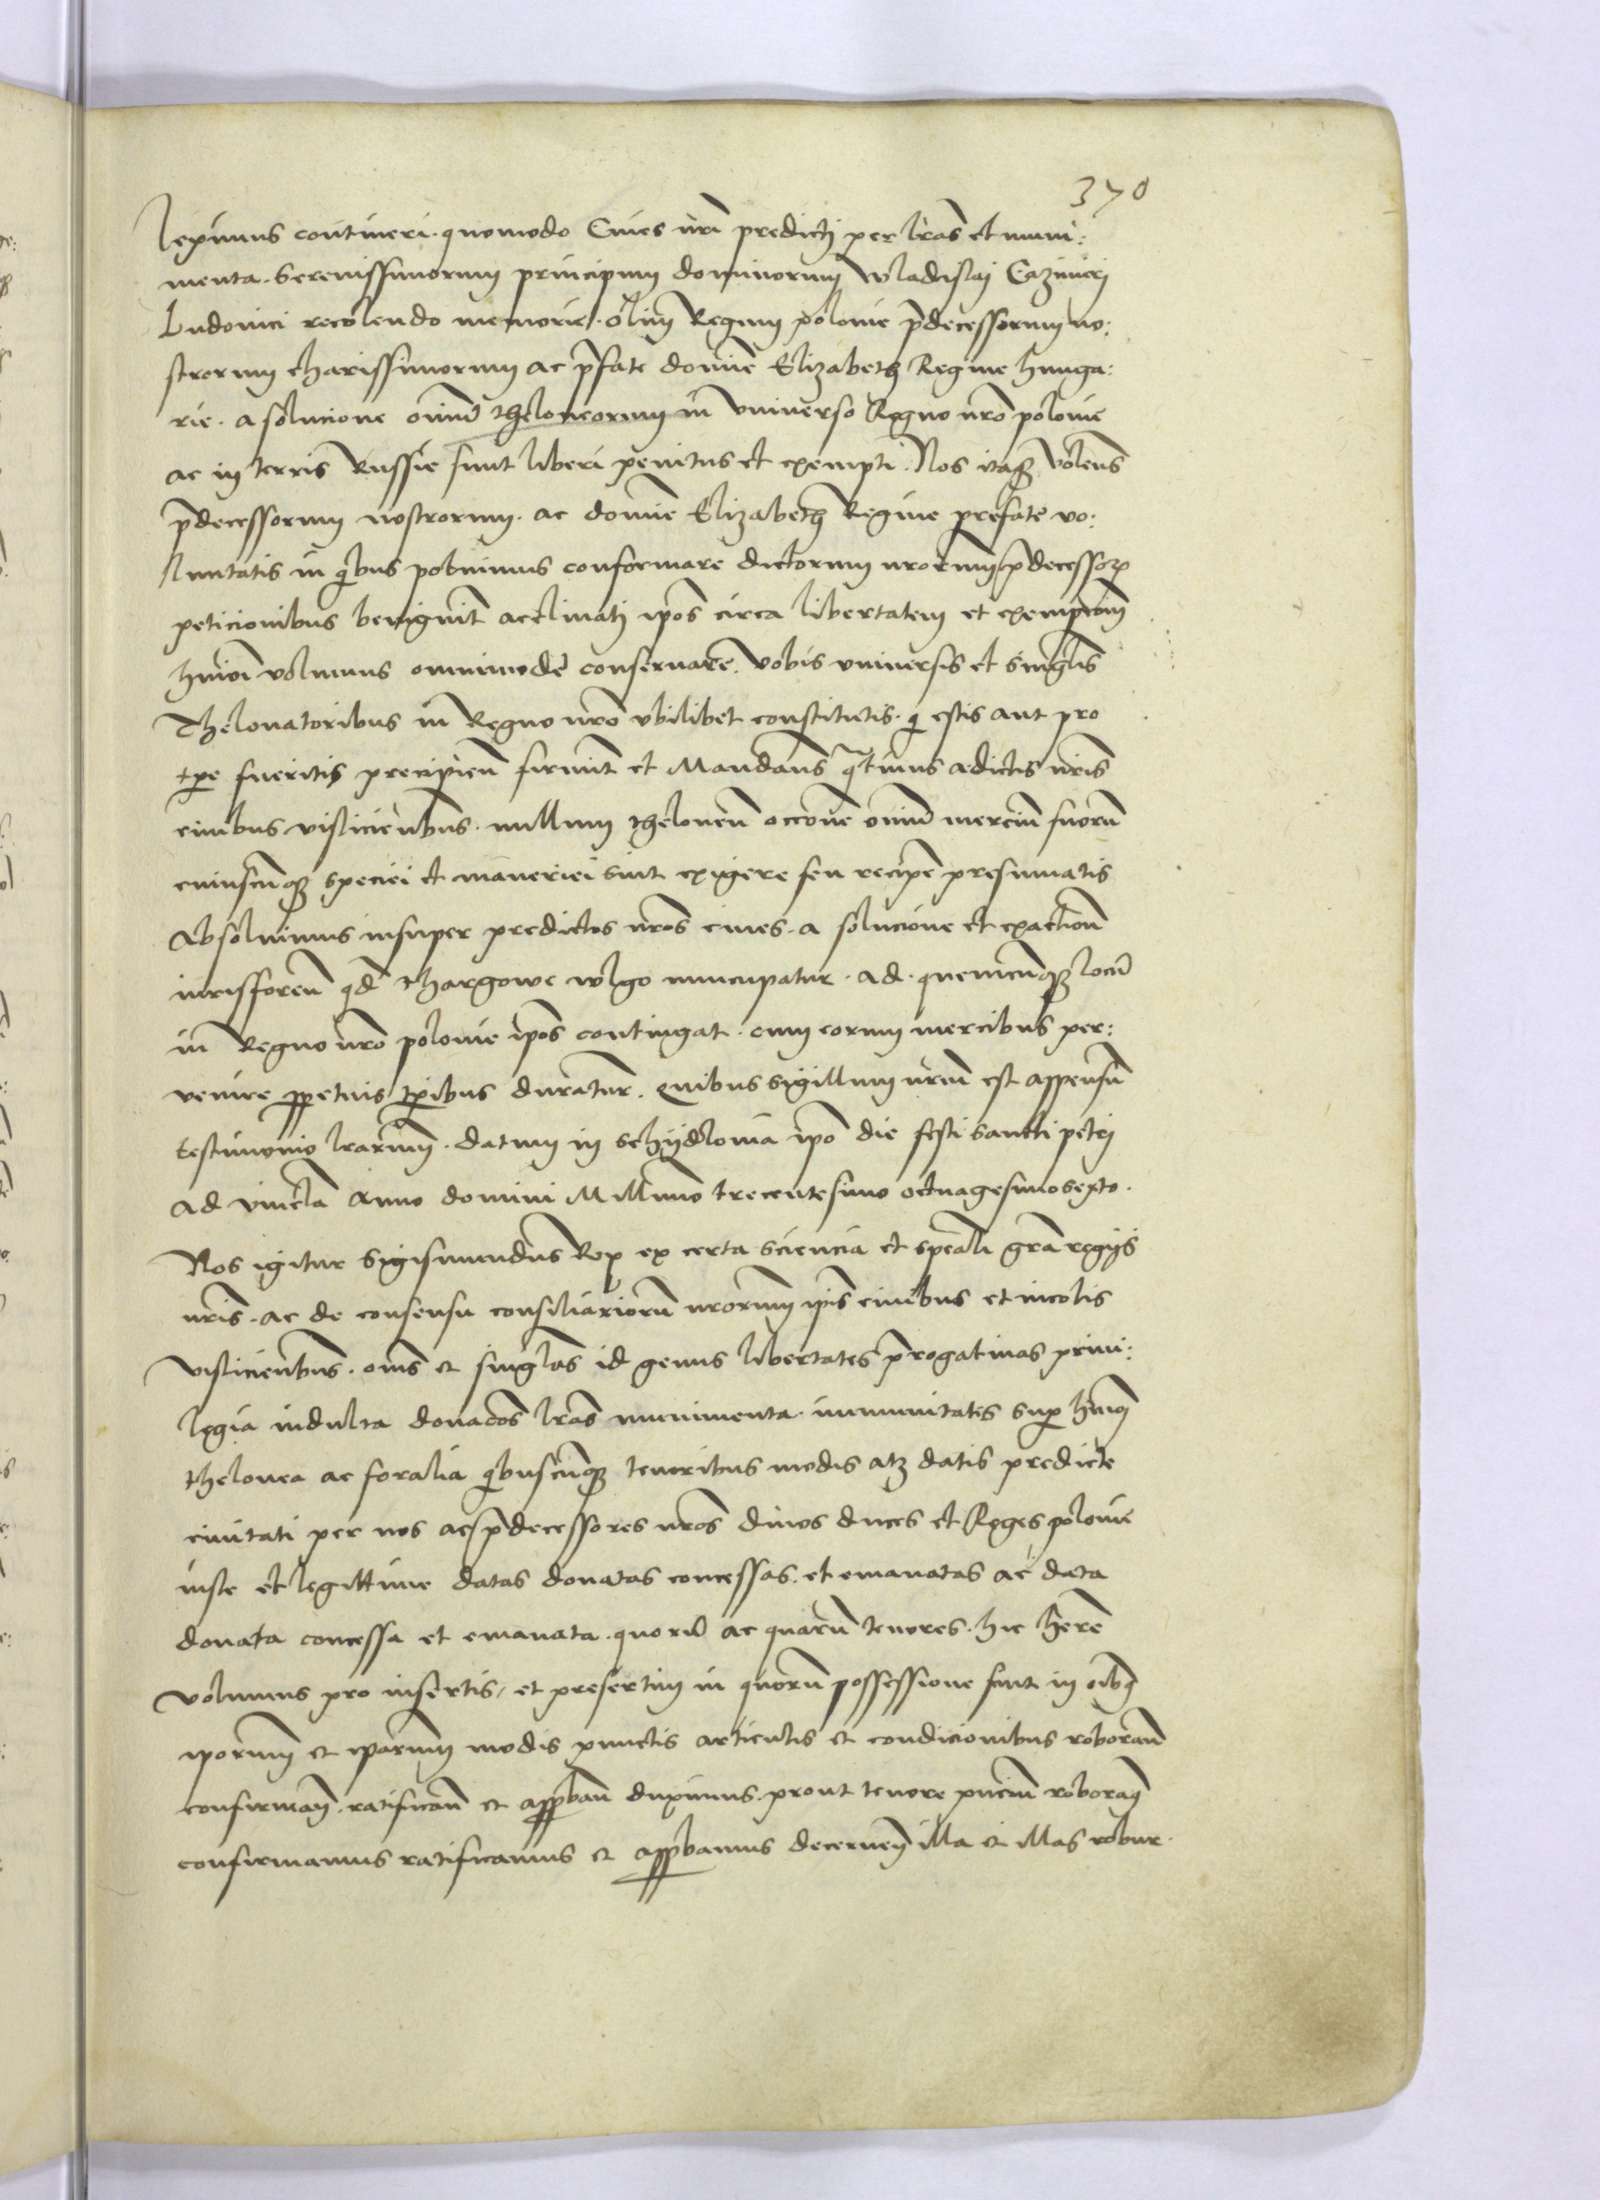 370
leximus contineri. quomodo Ciues nri predictj per lras et muni:
menta. Serenissimorum principum dominorum Wladislaj Cazimirj
Ludouici recolendo memorie. olim Regum polonie pdecessorum no:
strorum charissimorum ac pfate domine Elizabeth Regine hunga:
rie. a solucione oium theloneorum in vniuerso Regno nro polonie
ac in terris Russie sunt liberi penitus et exempti. Nos itaq volens
pdecessorum nostrorum. ac domine Elizabeth Regine prefate vo:
luntatis in qbus poterimus conformare dictorum nrorum pdecessor
peticionibus benignit acclinatj ipos circa libertatem et exempcom
hmoi volumus omnimode conseruare. vobis vniuersis et singlis
Thelonatoribus in Regno nro vbilibet constitutis. q estis aut pro
tpe fueritis precipien firmit et Mandans qtinus a dictis nris
ciuibus vislicien̄bus. nullum theloneu occone oium merciu suoru
cuiuscuq speciei et maneriei sint exigere seu recipe presumatis
Absoluimus insuper predictos nros ciues. a solucione et exaction
iurisforen qd thargowe wlgo nuncupatur. ad. quemcuq locu
in Regno nro polonie ipos contingat. cum eorum mercibus per:
venire ppetuis tpibus duratur. Quibus sigillum nrum est appensu
testimonio lrarum. datum in schijdlouia ipo die festi sancti petrj
ad vincla Anno domini Millimo trecentesimo octuagesimosexto.
Nos igitur Sigismundus Rex ex certa sciencia et speciali gra regijs
nris. ac de consensu consiliarioru nrorum ipis ciuibus et incolis
visliciensibus. oms et singlas id genus libertates prerogatiuas priui:
legia indulta donacoes lras munimenta. immunitates sup hmoi
thelonea ac foralia qbuscuq tenoribus modis atq datis predicte
ciuitati per nos ac pdecessores nros diuos duces et Reges polonie
iuste et legittime datas donatas concessas. et emanatas ac data
donata concessa et emanata. quoru ac quaru tenores. hic here
volumus pro insertis, et presertim in quoru possessione sunt in oibq
iporum et iparum modis punctis articulis et condicionibus roboran
confirman. ratifican et appban duximus. prout tenore pncium roboram
confirmamus ratificamus et appbamus decernen illa et illas robur.